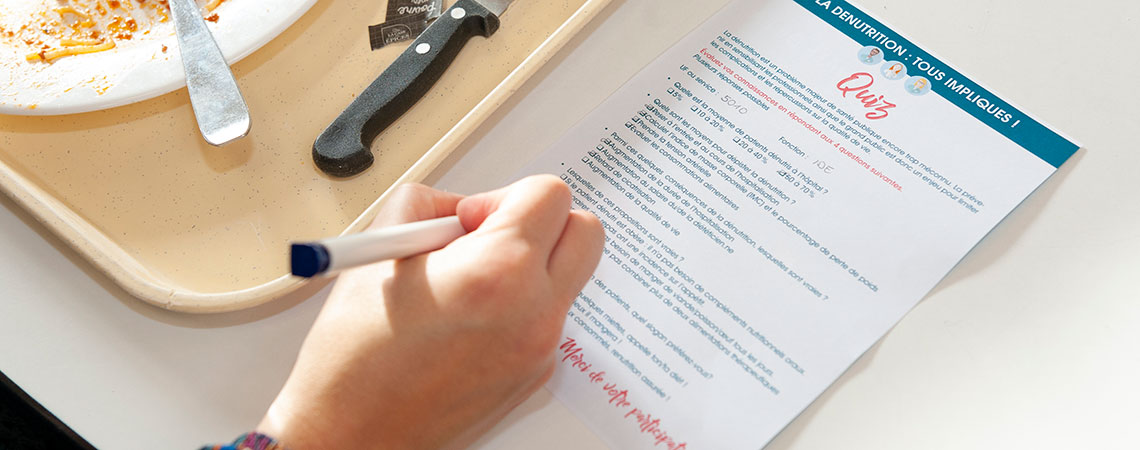 LA DENUTRITION : TOUS IMPLIQUES !
Quiz
La dénutrition est un problème majeur de santé publique encore trop méconnu. La préve-
nir en sensibilisant les professionnels ainsi que le grand public est donc un enjeu pour limiter
les complications et les répercussions sur la qualité de vie.
Evaluez vos connaissances en répondant aux 4 questions suivantes.
Plusieurs réponses possibles
UF ou service : 5010 Fonction : IDE
• Quelle est la moyenne de patients dénutris à l'hôpital ?
5% 10 à 20% 20 à 40% 50 à 70%
• Quels sont les moyens pour dépister la dénutrition ?
Peser à l'entrée et au cours de l'hospitalisation
Calculer l'indice de masse corporelle (IMC) et le pourcentage de perte de poids
Prendre la tension artérielle
Evaluer les consommations alimentaires
• Parmi ces quelques conséquences de la dénutrition, lesquelles sont vraies ?
Augmentation de la durée de l'hospitalisation
Retard de cicatrisation
Augmentation du salaire du/de la diététicien.ne
Augmentation de la qualité de vie
• Lesquelles de ces propositions sont vraies ?
Si le patient dénutri est obèse : il n'a pas besoin de compléments nutritionnels oraux
ont une incidence sur l'appétit
pas besoin de manger de viande/poisson/œuf tous les jours.
pas combiner plus de deux alimentations thérapeutiques
des patients, quel slogan préférez-vous?
quelques miettes, appelle ton/ta diet !
mieux il mangera !
consommés, renutrition assurée !
Merci de votre participation